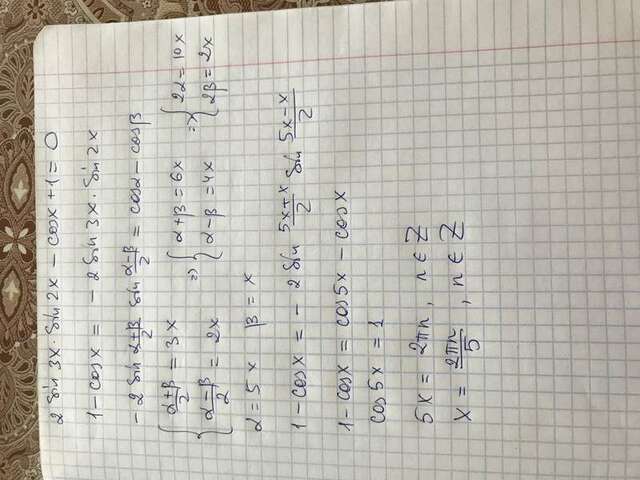 2 sin 3x · sin 2x − cosx + 1 = 0
1 − cosx = − 2 sin 3x · sin 2x
− 2 sin (α+β)/2 sin (α−β)/2 = cosα − cosβ
{ (α+β)/2 = 3x ⇒ { α+β = 6x ⇒ { 2α = 10x
(α−β)/2 = 2x α−β = 4x 2β = 2x
α = 5x β = x
1 − cosx = − 2 sin (5x+x)/2 sin (5x−x)/2
1 − cosx = cos5x − cosx
cos5x = 1
5x = 2πn, n ∈ Z
x = 2πn/5, n ∈ Z